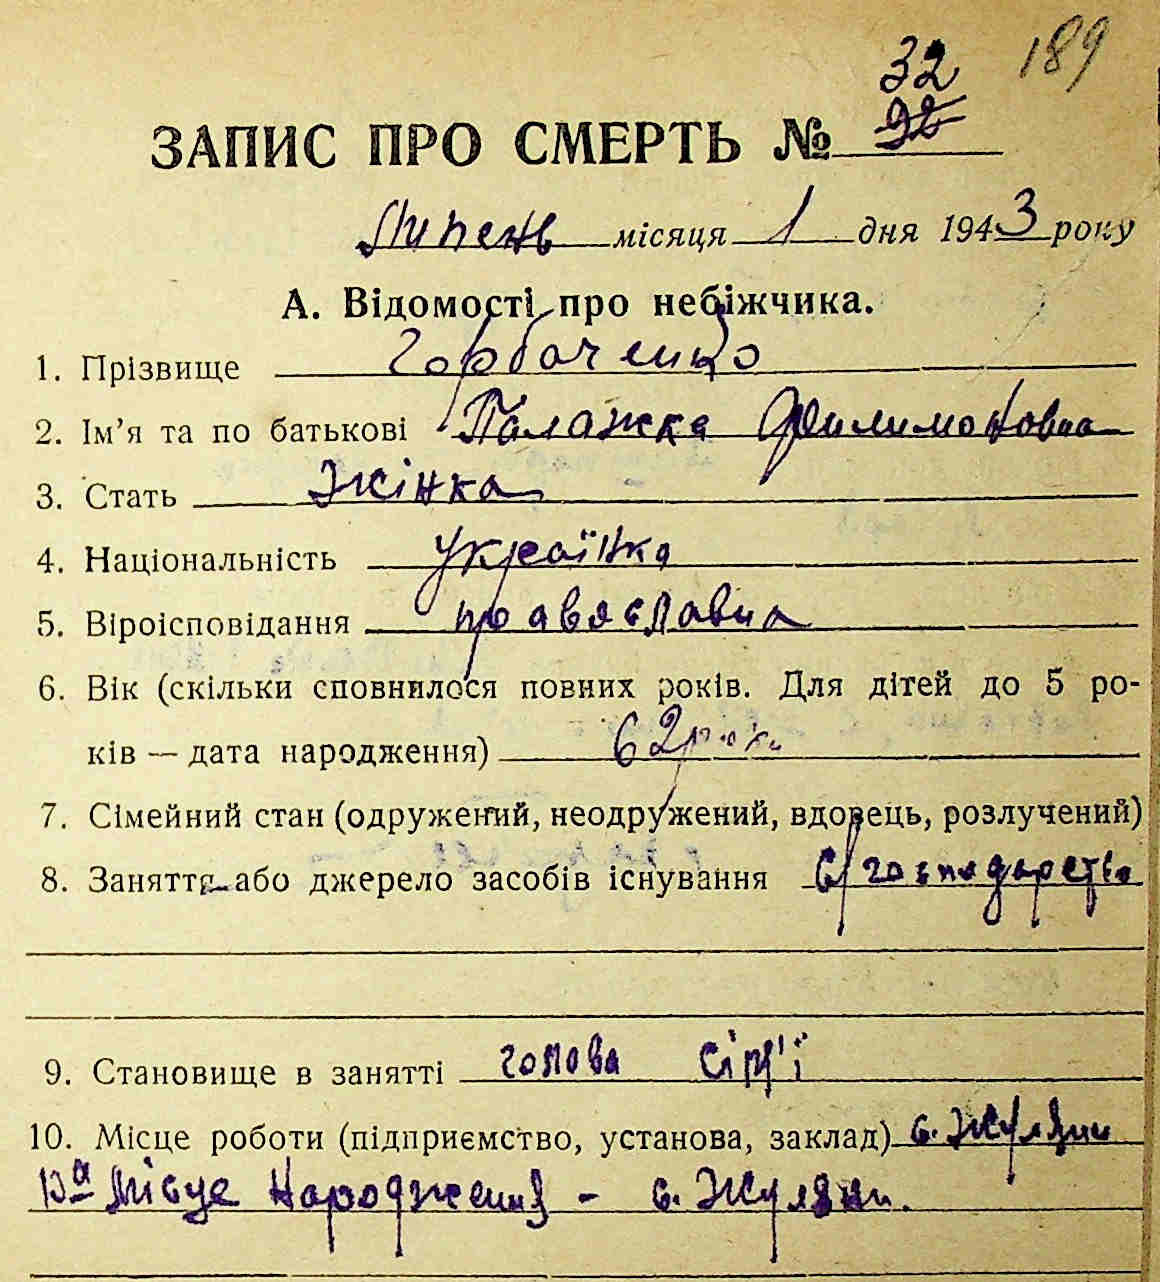 189
32
ЗАПИС ПРО СМЕРТЬ №
Липень місяця 1 дня 1943 року
А. Відомості про небіжчика.
1. Прізвище Горбаченко
2. Ім'я та по батькові Палажка Филимоновна
3. Стать Жінка
4. Національність Українка
5. Віроісповідання православна
6. Вік (скільки сповнилося повних років. Для дітей до 5 ро-
ків — дата народження) 62 роки
7. Сімейний стан (одружений, неодружений, вдовець, розлучений)
8. Заняття або джерело засобів існування с/господарство
9. Становище в занятті голова сім'ї
10. Місце роботи (підприємство, установа, заклад) с. Жуляни
13а Місце народження - с. Жуляни.